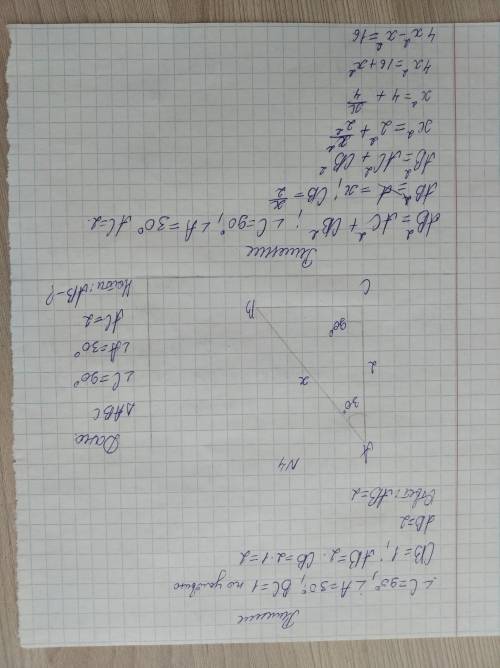 Решение
∠C=90°, ∠A=30°, BC=1 по условию
CB=1; AB=2·CB=2·1=2
AB=2
Ответ: AB=2
N4
Дано
△ABC
∠C=90°
∠A=30°
AC=2
Найти: AB-?
A
30°
2
x
90°
C
B
Решение
AB²=AC²+CB²; ∠C=90°, ∠A=30° AC=2
AB=x; CB=x/2
AB²=AC²+CB²
x²=2²+x²/2²
x²=4+x²/4
4x²=16+x²
4x²-x²=16